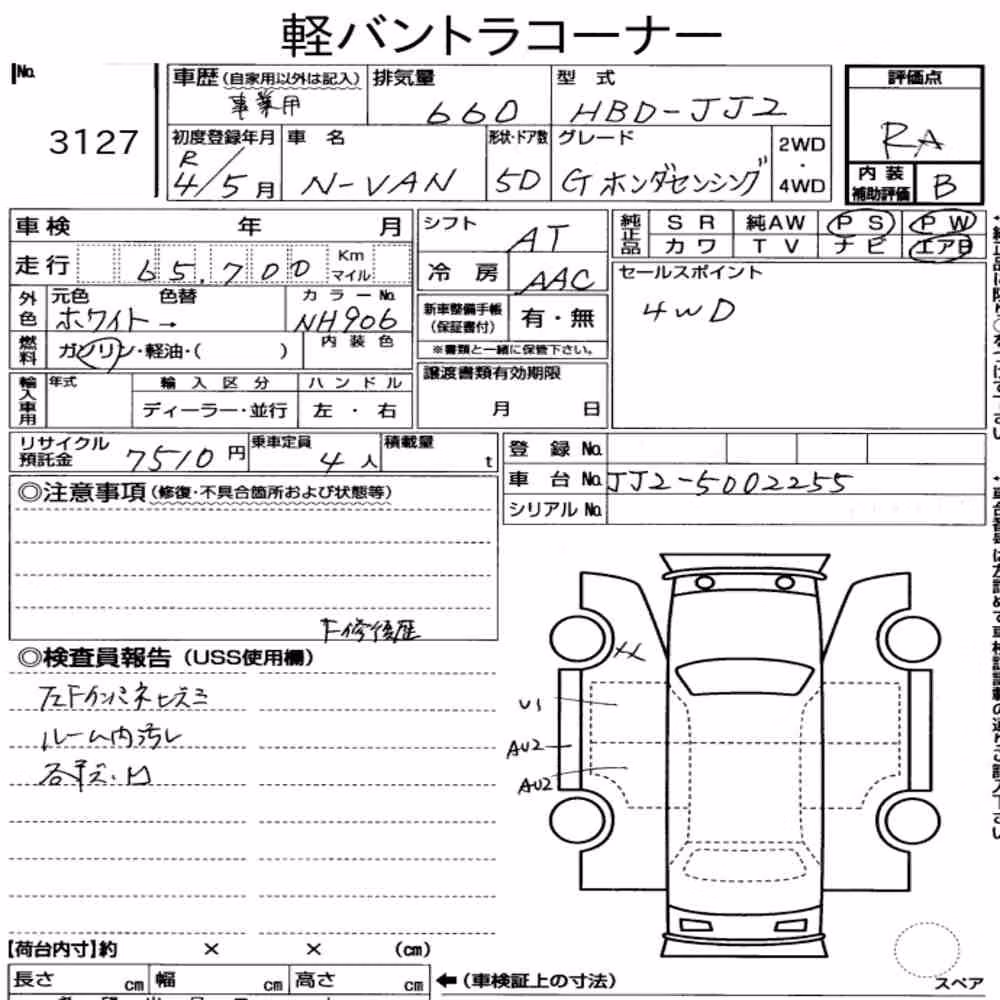 軽バントラコーナー
No.
3127
車歴(自家用以外は記入)
事業用
排気量
660
型 式
HBD-JJ2
評価点
RA
内装補助評価 B
初度登録年月
R4/5月
車 名
N-VAN
形状・ドア数
5D
グレード
G ホンダセンシング
2WD・4WD
車検 年 月
走行 65,700 Km マイル
シフト AT
冷房 AAC
純正品 SR 純AW PS PW
カワ TV ナビ エアB
セールスポイント
4WD
外色 元色 色替 カラーNo.
ホワイト→ NH906
燃料 ガソリン・軽油・( ) 内装色
新車整備手帳(保証書付) 有・無
※書類と一緒に保管下さい。
輸入車用 年式 輸入区分 ハンドル
ディーラー・並行 左・右
譲渡書類有効期限
月 日
リサイクル預託金 7510円
乗車定員 4人
積載量 t
登録No.
車台No. JJ2-5002255
シリアルNo.
◎注意事項(修復・不具合箇所および状態等)
F修復歴
◎検査員報告(USS使用欄)
ルーム内汚レ
XX
U1
AU2
AU2
【荷台内寸】約 × × (cm)
長さ cm 幅 cm 高さ cm
←(車検証上の寸法)
スペア